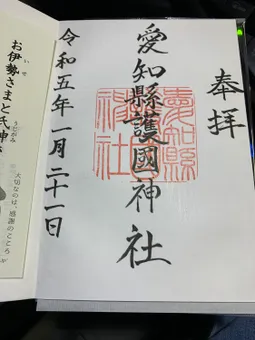 奉拝
愛知縣護國神社
愛知縣護國神社
令和五年一月二十一日
お伊勢さまと氏神
うじがみ
大切なのは、感謝のこころ